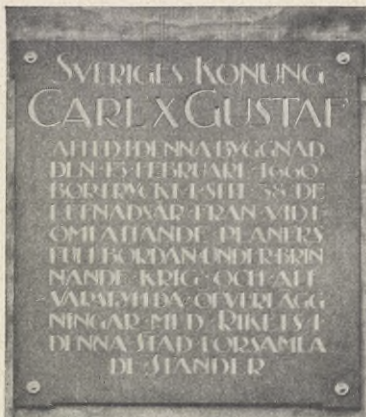 SVERIGES KONUNG
CARL X GUSTAF
AFLED I DENNA BYGGNAD
DEN 13 FEBRUARI 1660
BORTRYCKT I SITT 38 DE
LEFNADSÅR FRÅN VIDT
OMFATTANDE PLANERS
FULLBORDAN UNDER BRIN
NANDE KRIG OCH ALL
VARSFYLLDA ÖFVERLÄGG
NINGAR MED RIKETS I
DENNA STAD FÖRSAMLA
DE STÄNDER